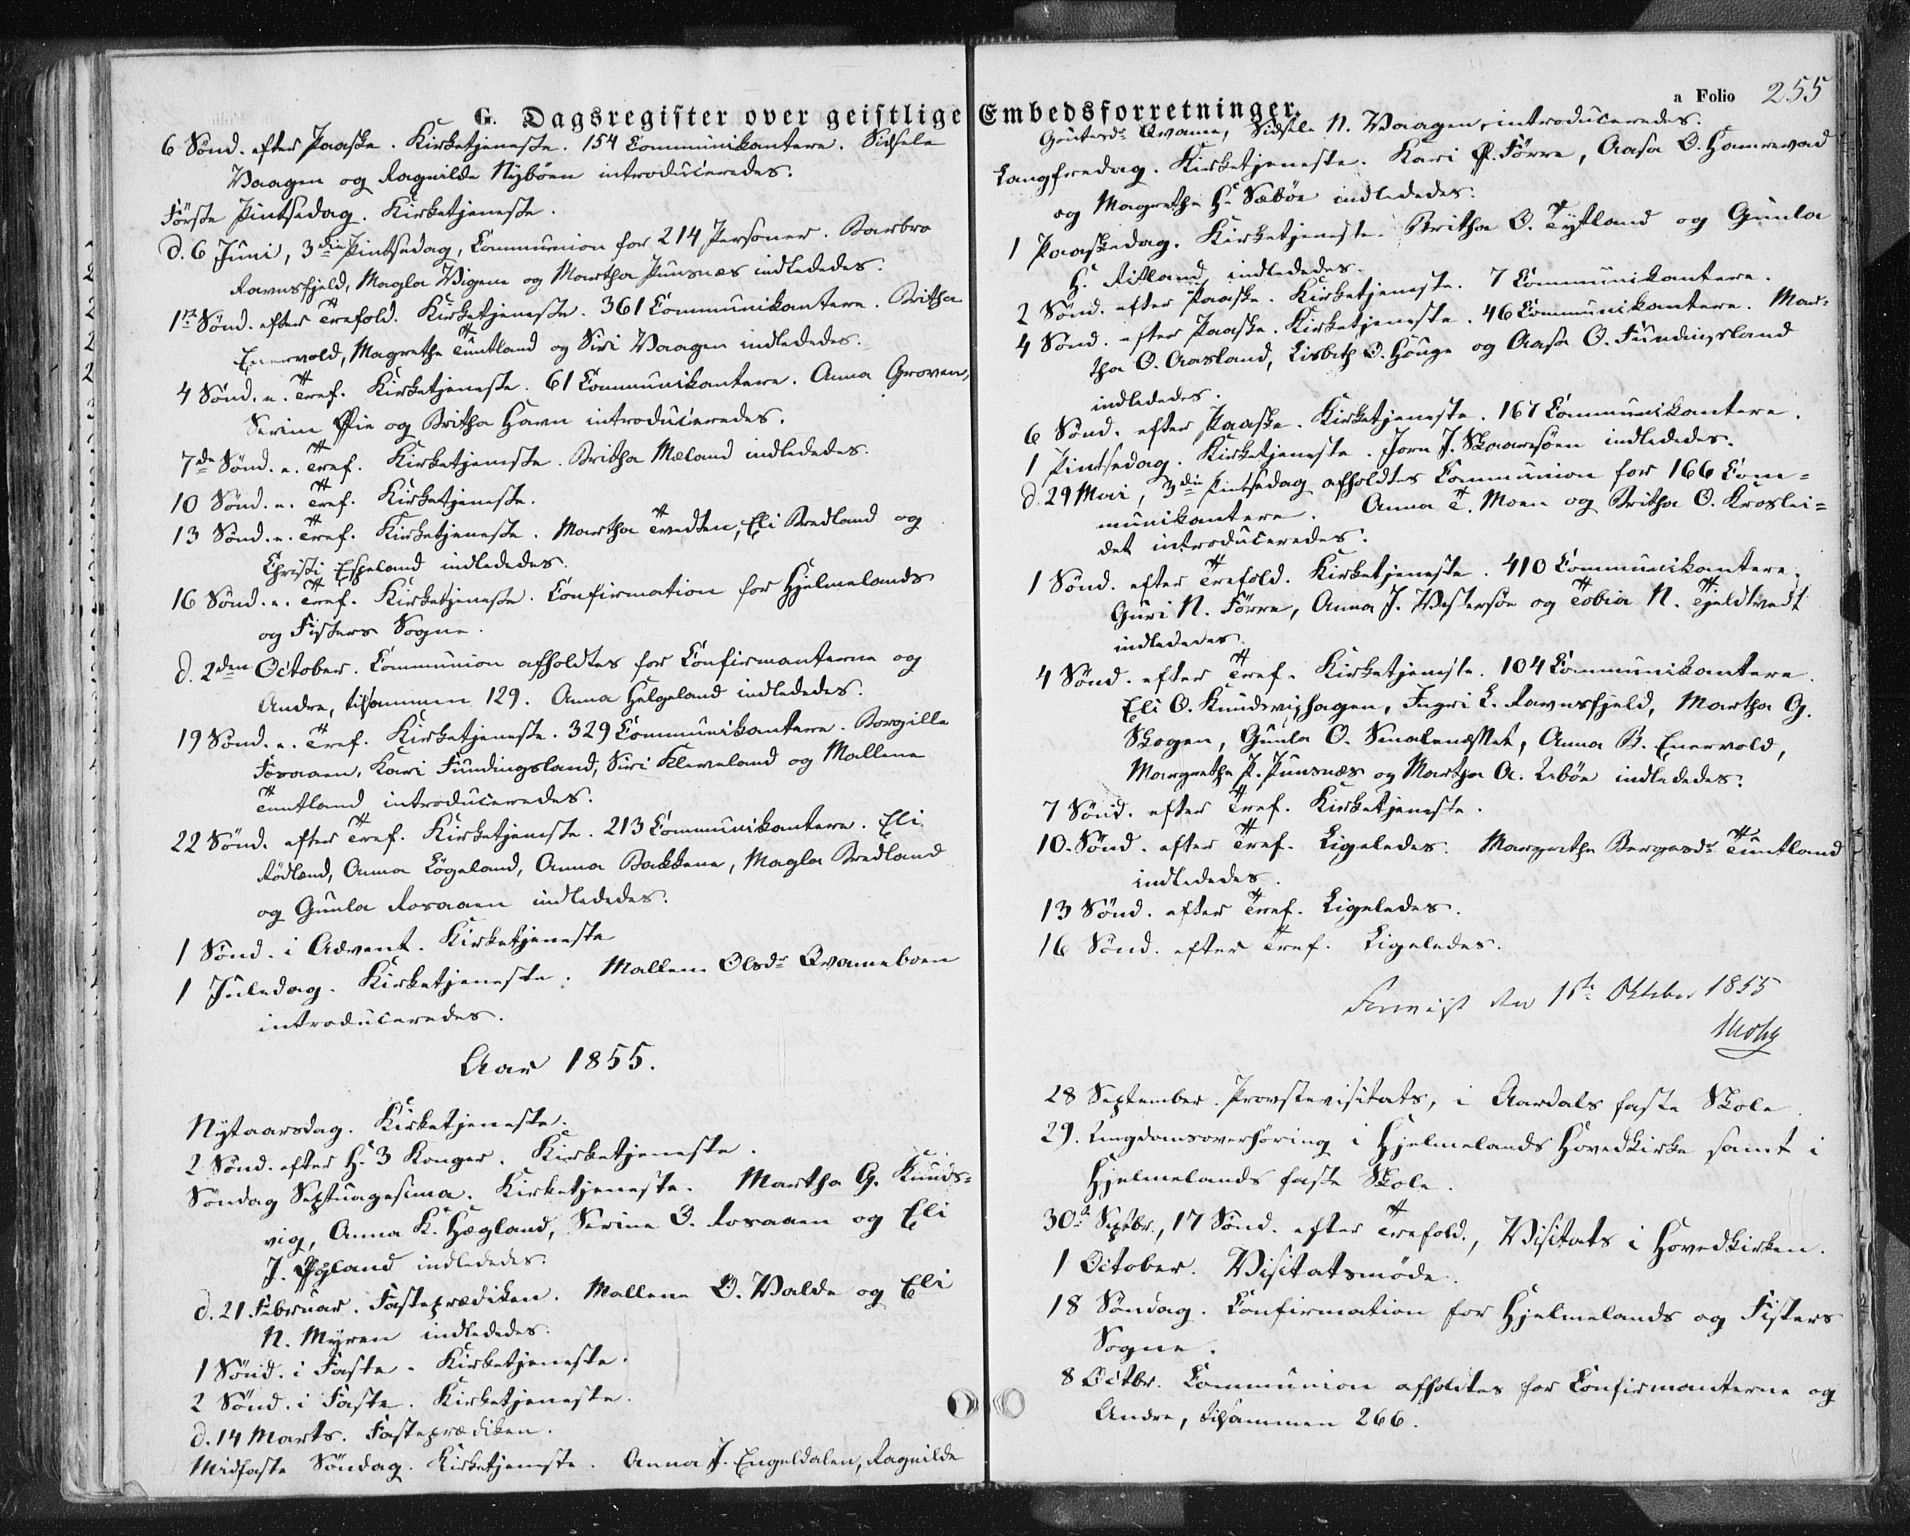 G. Dagsregister over geistlige Embedsforretninger.
a Folio 255
6 Sønd. efter Paaske. Kirketjeneste. 154 Communikantere. Sidsele
Vaagen og Ragnilde Nybøen introduceredes.
Første Pintsedag. Kirketjeneste.
d. 6 Juni, 3die Pintsedag, Communion for 214 Personer. Barbro
Ravnsfjeld, Magla Vigene og Martha Puusnæs indlededes.
1ste Sønd. efter Trefold. Kirketjeneste. 361 Communikantere. Britha
Enervold, Magrethe Tuntland og Siri Vaagen indlededes.
4 Sønd. e. Tref. Kirketjeneste. 61 Communikantere. Anna Groven,
Serine Øie og Britha Havn introduceredes.
7de Sønd. e. Tref. Kirketjeneste. Britha Mæland indlededes.
10 Sønd. e. Tref. Kirketjeneste.
13 Sønd. e. Tref. Kirketjeneste. Martha Tvedten, Eli Bredland og
Christi Espeland indlededes.
16 Sønd. e. Tref. Kirketjeneste. Confirmation for Hjelmelands
og Fisters Sogne.
d. 2den October. Communion afholdtes for Confirmanterne og
Andre, tilsammen 129. Anna Helgeland indlededes.
19 Sønd. e. Tref. Kirketjeneste. 329 Communikantere. Borgille
Foraaen, Kari Fundingsland, Siri Kleveland og Mallene
Tuntland introduceredes.
22 Sønd. efter Tref. Kirketjeneste. 213 Communikantere. Eli
Rødland, Anna Løgeland, Anna Bakkene, Magla Bredland
og Gunla Rosaaen indlededes.
1 Sønd. i Advent. Kirketjeneste
1 Juledag. Kirketjeneste. Mallene Olsdr Qvameboen
introduceredes.
Aar 1855.
Nytaarsdag. Kirketjeneste.
2 Sønd. efter H. 3 Konger. Kirketjeneste.
Søndag Septuagesima. Kirketjeneste. Martha G. Knuds-
vig, Anna K. Hægland, Serine O. Rosaaen og Eli
J. Øgland indlededes.
d. 21 Februar. Fasteprædiken. Mallene O. Valde og Eli
N. Myren indlededes.
1 Sønd. i Faste. Kirketjeneste.
2 Sønd. i Faste. Kirketjeneste.
d. 14 Marts. Fasteprædiken.
Midfaste Søndag. Kirketjeneste. Anna J. Engeldalen, Ragnilde
Qvame, Sidsele N. Vaagen, introduceredes.
Langfredag. Kirketjeneste. Kari Ø. Førre, Aasa O. Hamrevad
og Magrethe H. Sæbøe indlededes.
1 Paaskedag. Kirketjeneste. Britha O. Tytland og Gunla
H. Ritland indlededes.
2 Sønd. efter Paaske. Kirketjeneste. 7 Communikantere.
4 Sønd. efter Paaske. Kirketjeneste. 46 Communikantere. Mar-
tha O. Aasland, Lisbeth O. Houge og Aasa O. Fundingsland
indlededes.
6 Sønd. efter Paaske. Kirketjeneste. 167 Communikantere.
1 Pintsedag. Kirketjeneste. Joren J. Skaaresøen indlededes.
d. 29 Mai, 3die Pintsedag afholdtes Communion for 166 Com-
munikantere. Anna T. Moen og Britha O. Kroslei-
det introduceredes.
1 Sønd. efter Trefold. Kirketjeneste. 410 Communikantere.
Guri N. Førre, Anna J. Vestersøe og Tobia N. Tjeldtvedt
indlededes.
4 Sønd. efter Tref. Kirketjeneste. 104 Communikantere.
Eli O. Knudsvighagen, Ingri L. Ravnsfjeld, Martha G.
Skogen, Gunla O. Smalenæsset, Anna B. Enervold,
Margrethe P. Puusnæs og Martha A. Libøe indlededes.
7 Sønd. efter Tref. Kirketjeneste.
10. Sønd. efter Tref. Ligeledes. Margrethe Bergesdr Tuntland
indlededes.
13 Sønd. efter Tref. Ligeledes.
16 Sønd. efter Tref. Ligeledes.
Foreviist den 1ste Oktober 1855
28 September. Provstevisitats, i Aardals faste Skole.
29. Ungdomsoverhøring i Hjelmelands Hovedkirke samt i
Hjelmelands faste Skole.
30te Septbr., 17 Sønd. efter Trefold., Visitats i Hovedkirken.
1 October. Visitatsmøde.
18 Søndag. Confirmation for Hjelmelands og Fisters
Sogne.
8 Octbr. Communion afholdtes for Confirmanterne og
Andre, tilsammen 266.